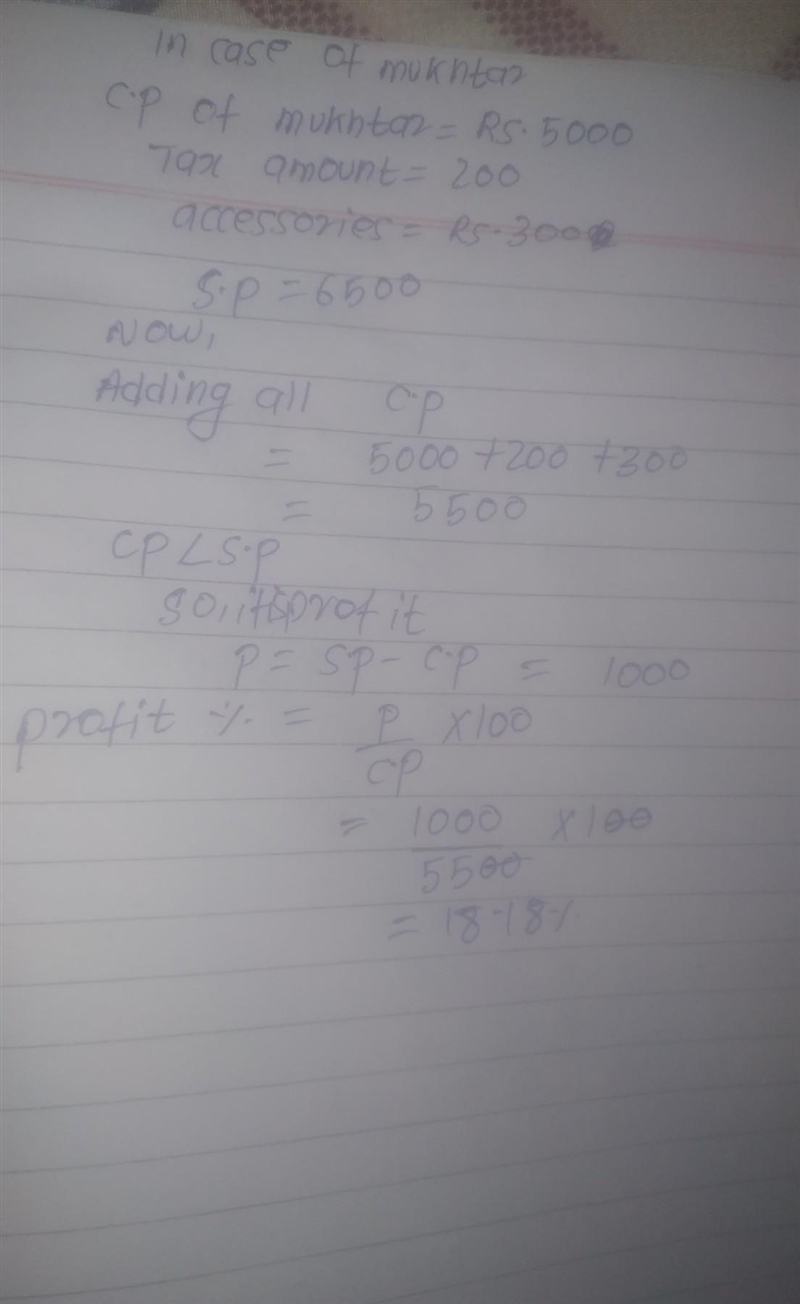 In case of mukhtar
C.P of mukhtar = Rs. 5000
Tax amount = 200
accessories = Rs. 300
S.P = 6500
Now,
Adding all C.P
= 5000 + 200 + 300
= 5500
CP < S.P
SO, its profit
P = SP - C.P = 1000
profit % = P/CP × 100
= 1000/5500 × 100
= 18.18%